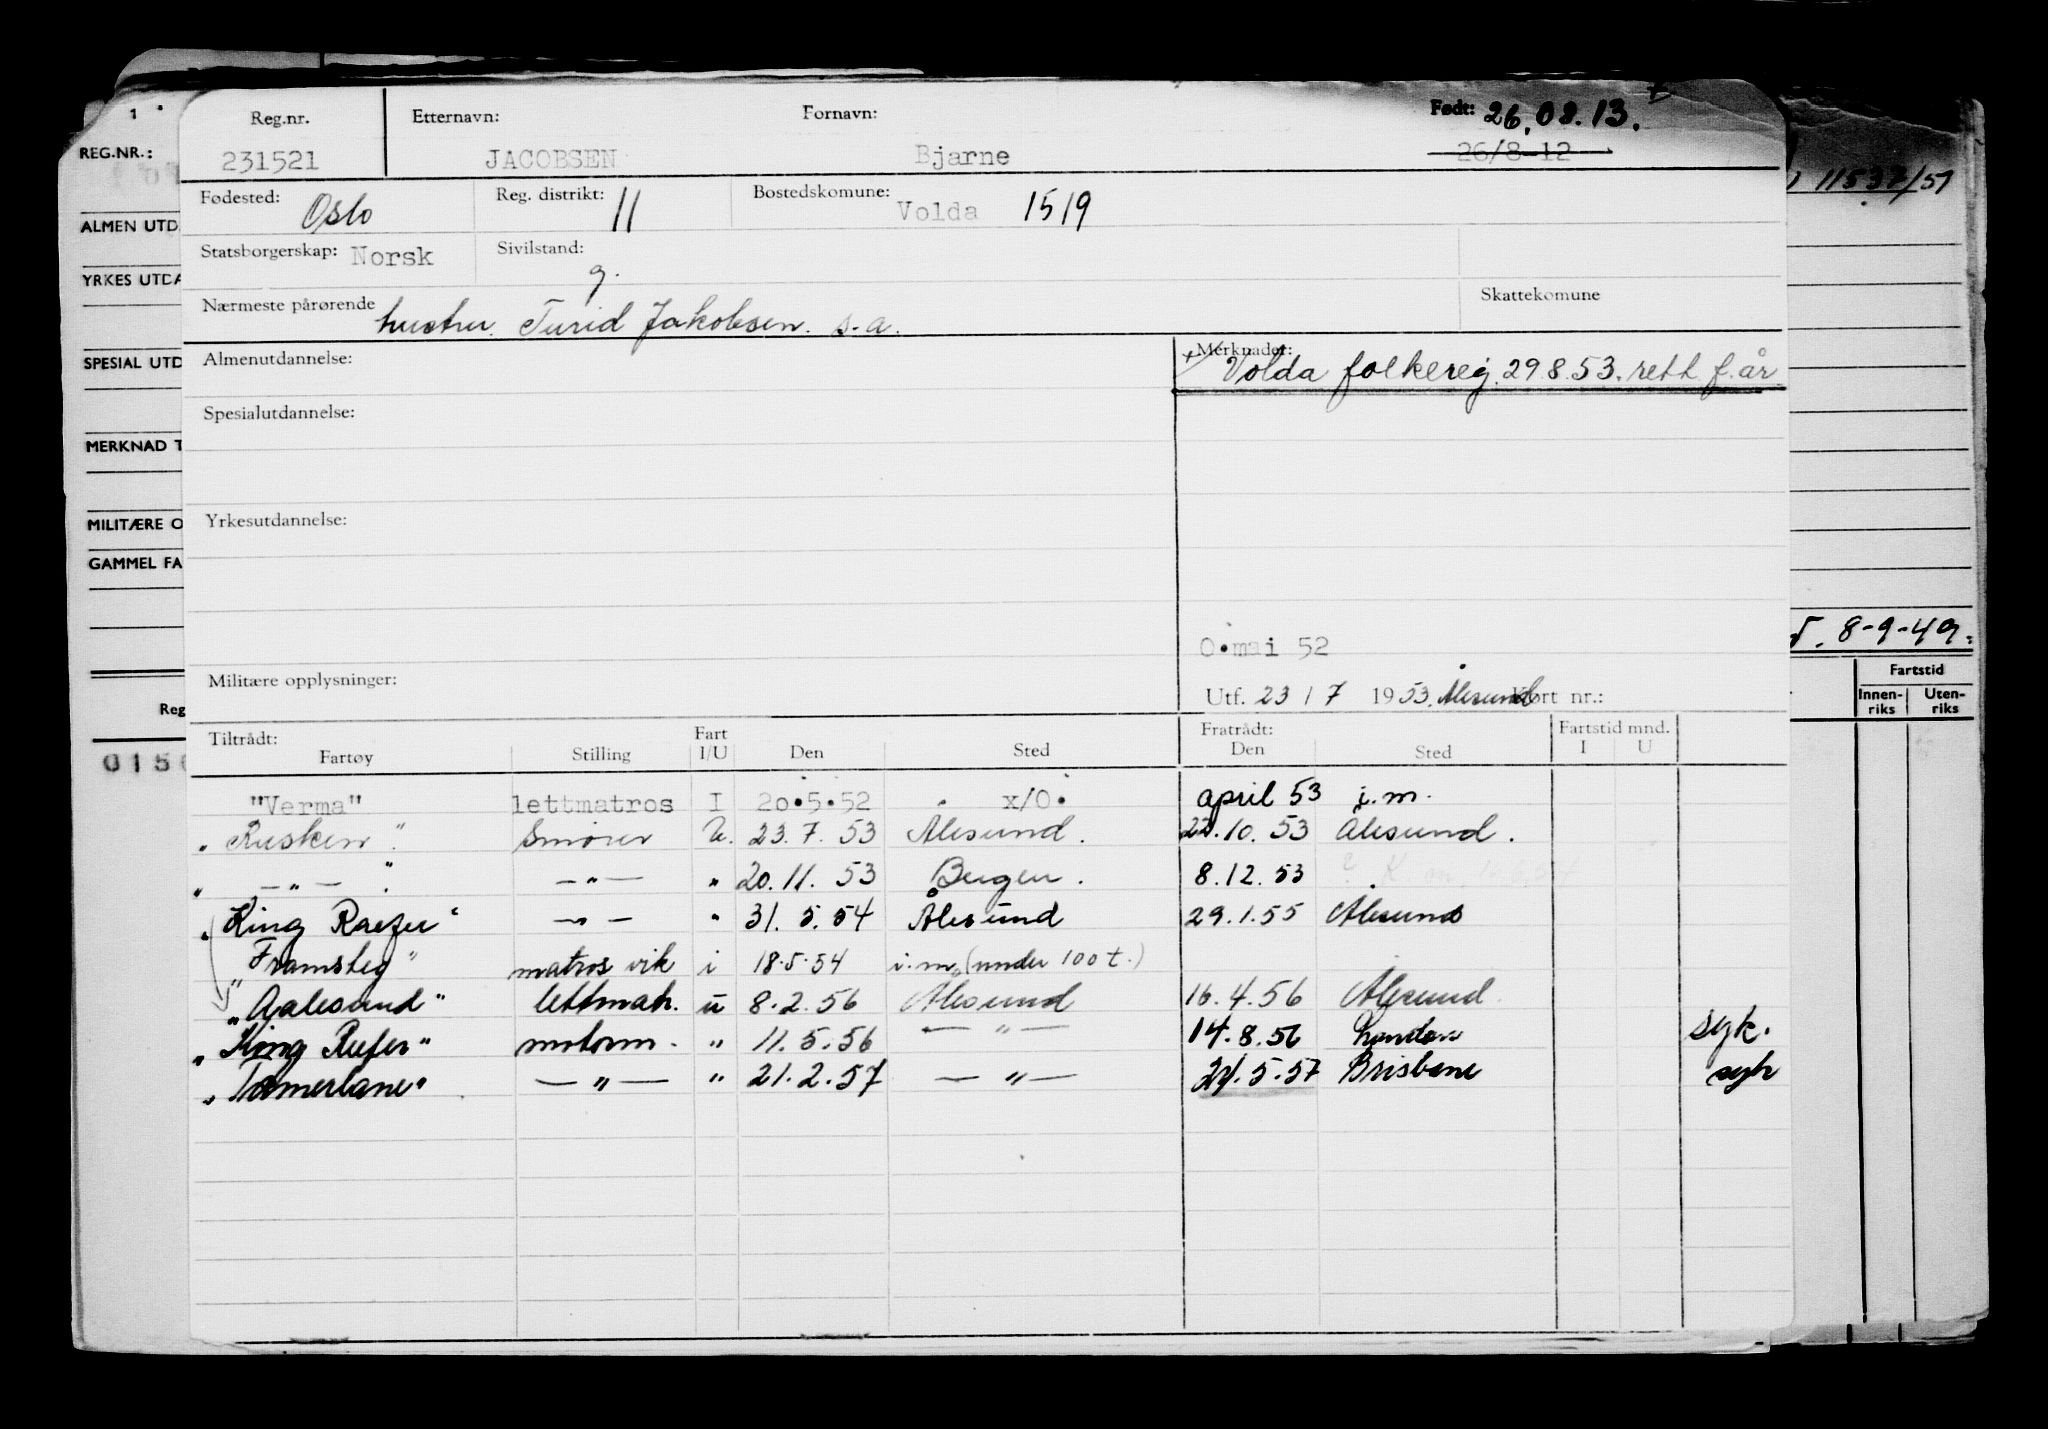 1
REG.NR.:
ALMEN UTD
YRKES UTDA
SPESIAL UTD
MERKNAD T
MILITÆRE O
GAMMEL FA
Reg
Reg.nr. Etternavn: Fornavn: Født: 26.08.13.
231521 JACOBSEN Bjarne 26/8-12
11537/51
Fødested: Oslo Reg. distrikt: 11 Bostedskomune: Volda 1519
Statsborgerskap: Norsk Sivilstand: g.
Nærmeste pårørende hustru. Turid Jakobsen. s.a. Skattekomune
Almenutdannelse: Merknader:
+ Volda folkereg. 29.8.53. rett f.år.
Spesialutdannelse:
Yrkesutdannelse:
O.mai 52
8-9-49.
Militære opplysninger: Utf. 23 / 7 1953. Ålesund Kort nr.:
Fartstid
Innen-riks Uten-riks
Tiltrådt: Fart Fratrådt: Fartstid mnd.
Fartøy Stilling I/U Den Sted Den Sted I U
"Verma" lettmatros I 20.5.52 x/O. april 53 i.m.
"Rusken" Smører U. 23.7.53 Ålesund. 22.10.53 Ålesund.
" — " — " — " — " 20.11.53 Bergen. 8.12.53
"King Raefer" — " — " 31.5.54 Ålesund 29.1.55 Ålesund
"Framsteg" matros vik i 18.5.54 i.m. (under 100 t.)
"Aalesund" lettmatr. u 8.2.56 Ålesund 16.4.56 Ålesund
"King Reefer" motorm. " 11.5.56 — " — 14.8.56 London syk.
"Tamerlane" — " — " 21.2.57 — " — 24.5.57 Brisbane syk